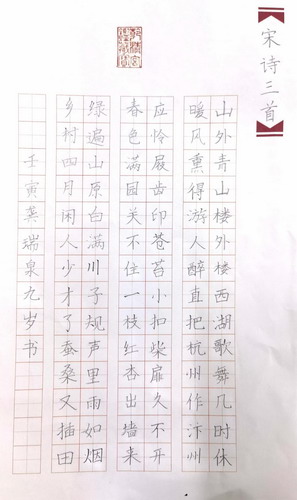 宋诗三首
山外青山楼外楼西湖歌舞几时休
暖风熏得游人醉直把杭州作汴州
应怜屐齿印苍苔小扣柴扉久不开
春色满园关不住一枝红杏出墙来
绿遍山原白满川子规声里雨如烟
乡村四月闲人少才了蚕桑又插田
壬寅龚瑞泉九岁书